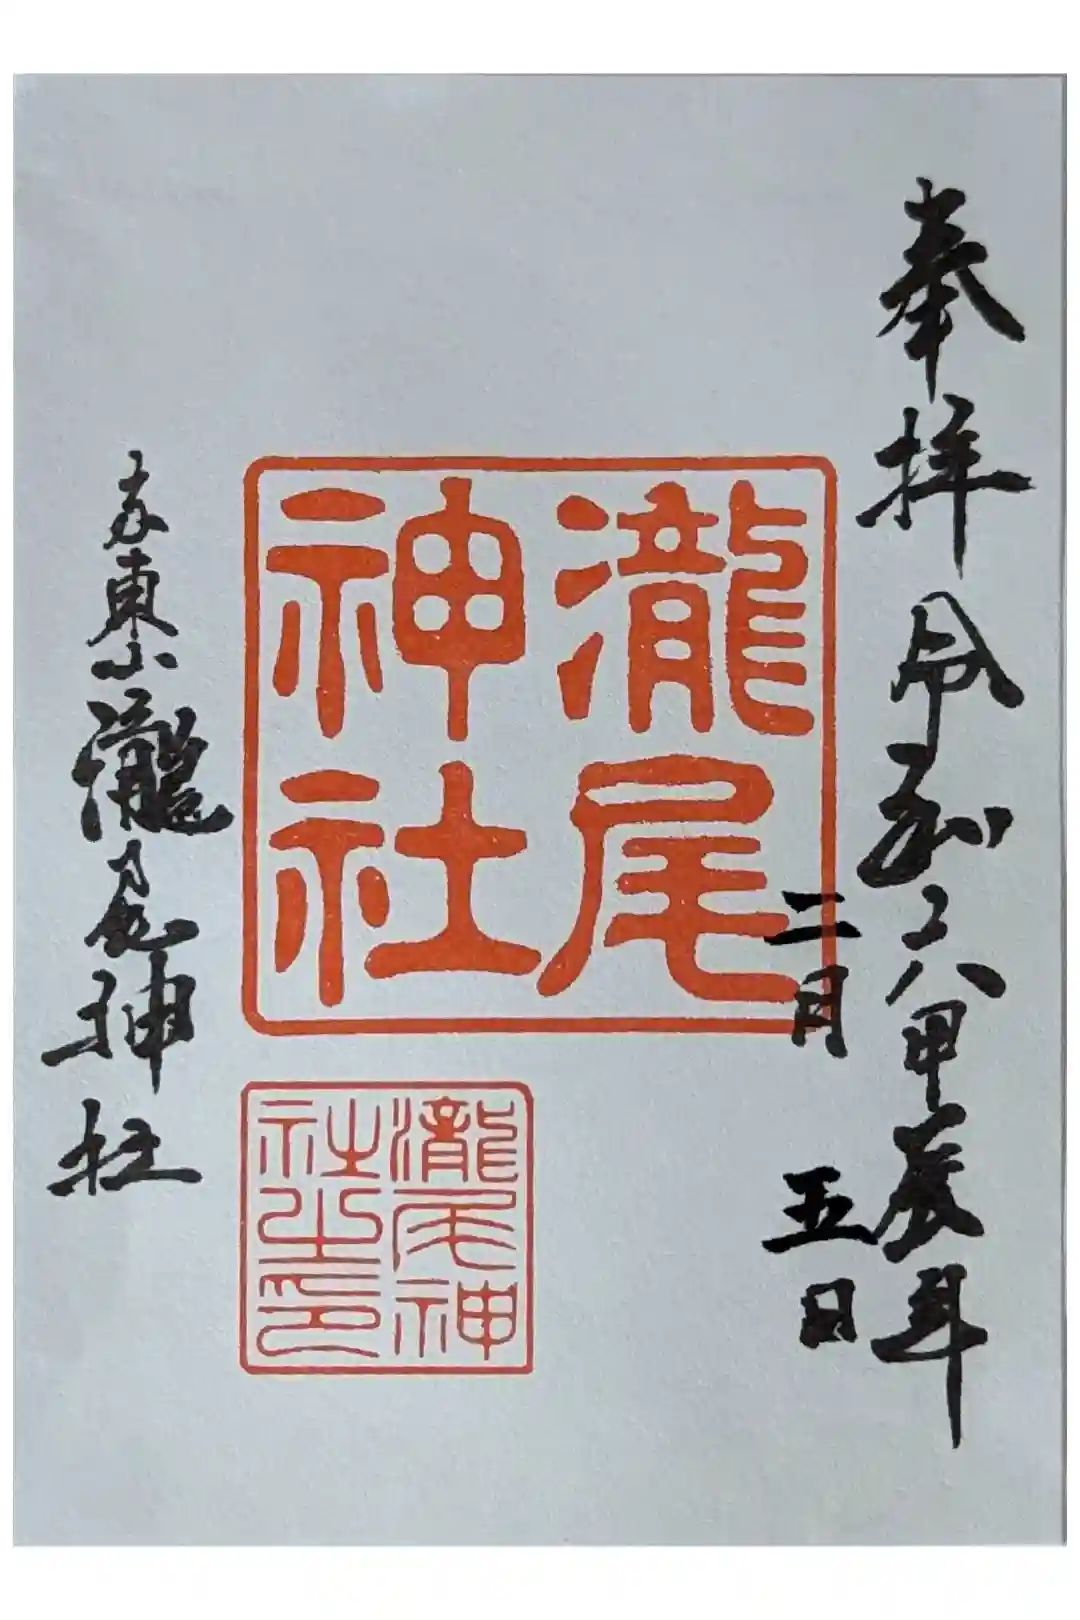 奉拝 令和六甲辰年
二月 五日
瀧尾
神社
瀧尾神
社之印
京東山瀧尾神社